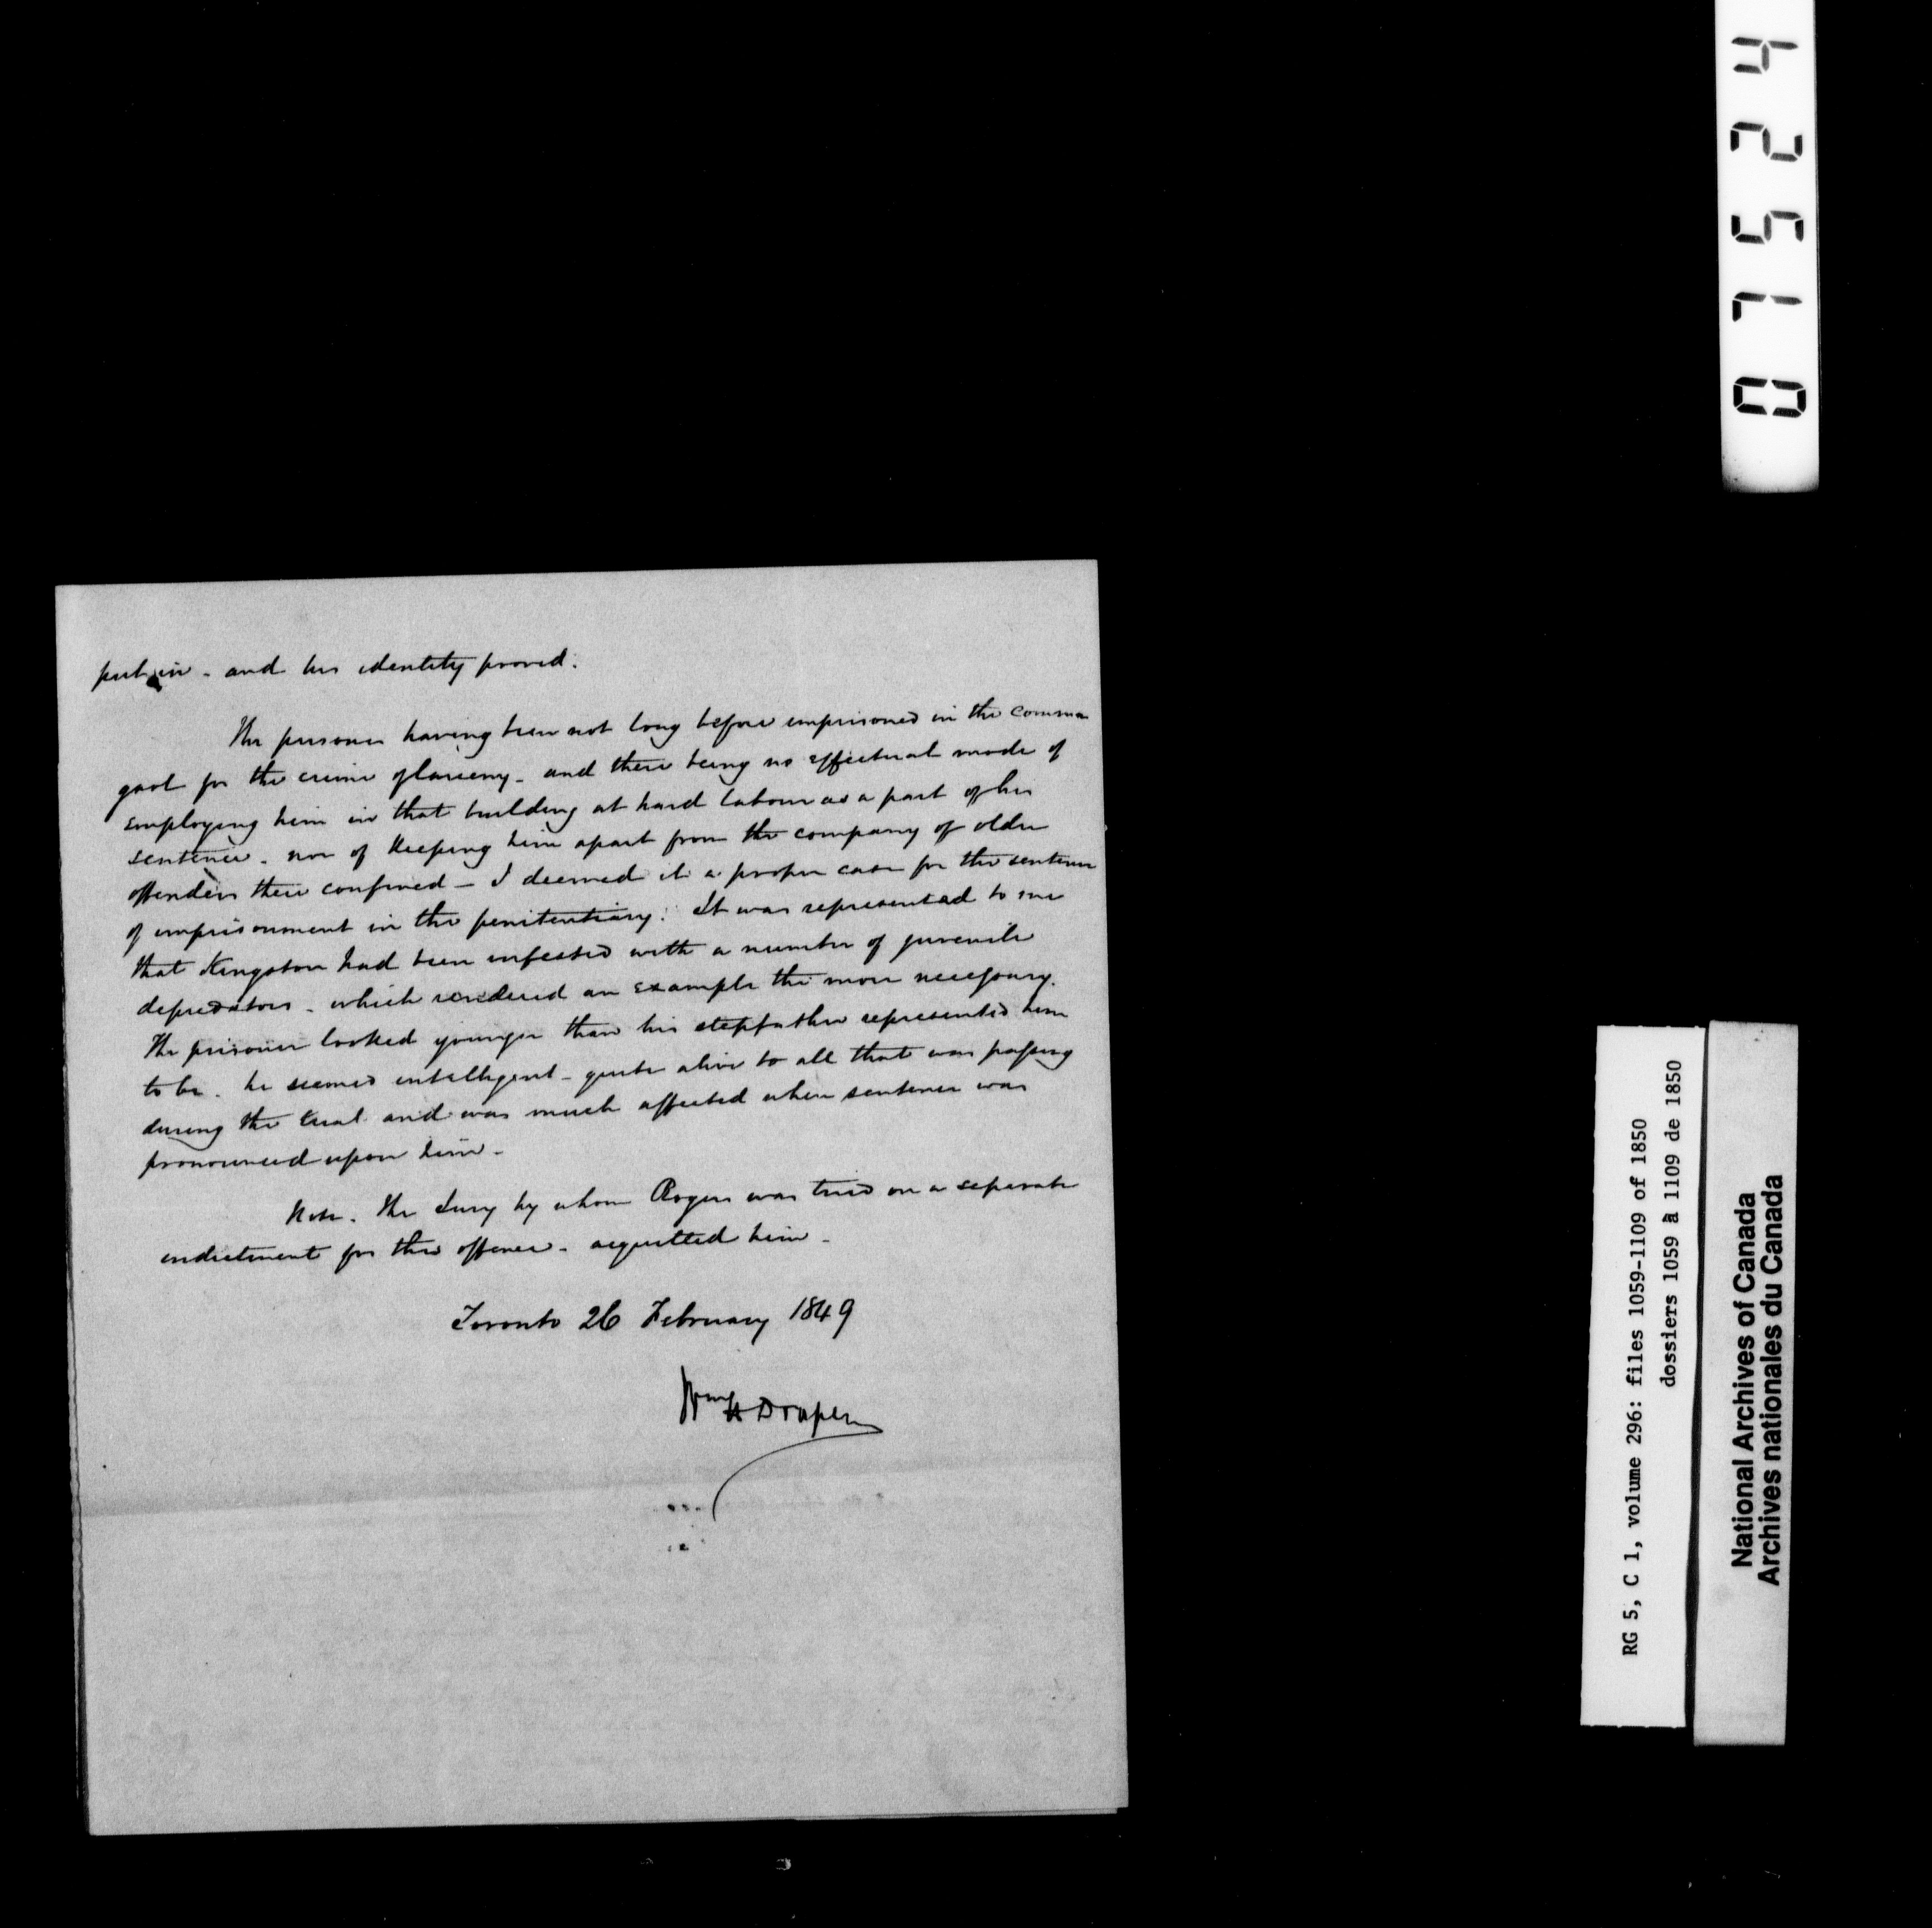 put in - and his identity proved.
The prisoner having been not long before imprisoned in the common
gaol for the crime of larceny - and there being no effectual mode of
employing him in that building at hard labour as a part of his
sentence - nor of keeping him apart from the company of older
offenders there confined - I deemed it a proper case for the sentence
of imprisonment in the penitentiary. It was represented to me
that Kingston had been infested with a number of juvenile
depredators - which rendered an example the more necessary.
The prisoner looked younger than his stepfather represented him
to be. he seemed intelligent - quite alive to all that was passing
during the trial and was much affected when sentence was
pronounced upon him -
Note. The Jury by whom Rogers was tried on a separate
indictment for this offence - acquitted him -
Toronto 26 February 1849
Wm H Draper
42510
RG 5, C 1, volume 296: files 1059-1109 of 1850
dossiers 1059 à 1109 de 1850
National Archives of Canada
Archives nationales du Canada